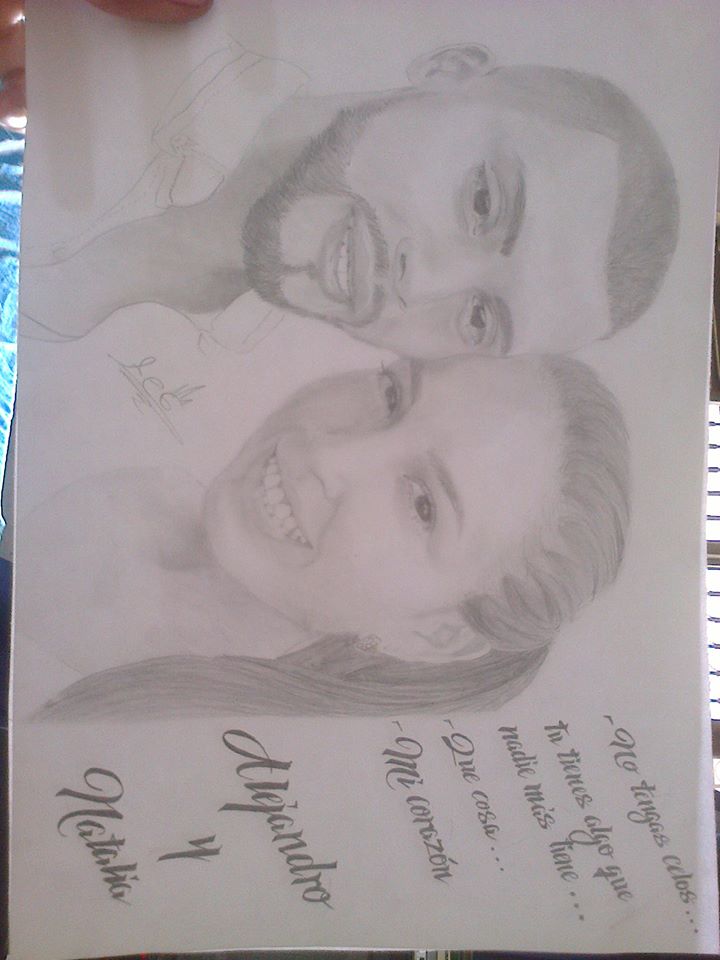 - No tengas celos...
tu tienes algo que
nadie más tiene...
- Que cosa...
- Mi corazón
Alejandro
y
Natalia